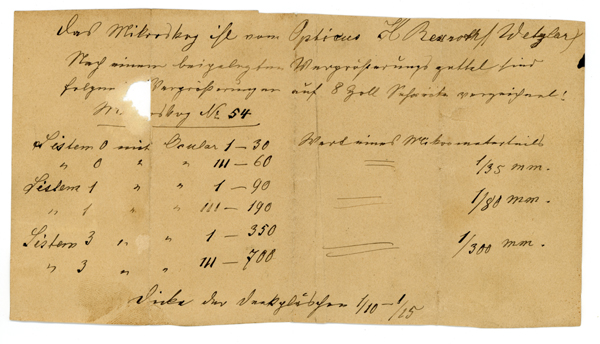 Das Mikroskop ist vom Opticus H Rexroth (Wetzlar)
Nach einem beigelegten Vergrößerungszettel sind
folgen Vergrößerungen auf 8 Zoll verzeichnet:
Mi roskop No 54
Sistem 0 mit Ocular 1 – 30 Wert eines Mikrometerteils
" 0 " " III – 60 = 1/35 mm.
Sistem 1 " " 1 – 90
" 1 " " III – 190 = 1/80 mm.
Sistem 3 " " 1 – 350
" 3 " " III – 700 = 1/300 mm.
Dicke der Deckgläschen 1/10 – 1/15